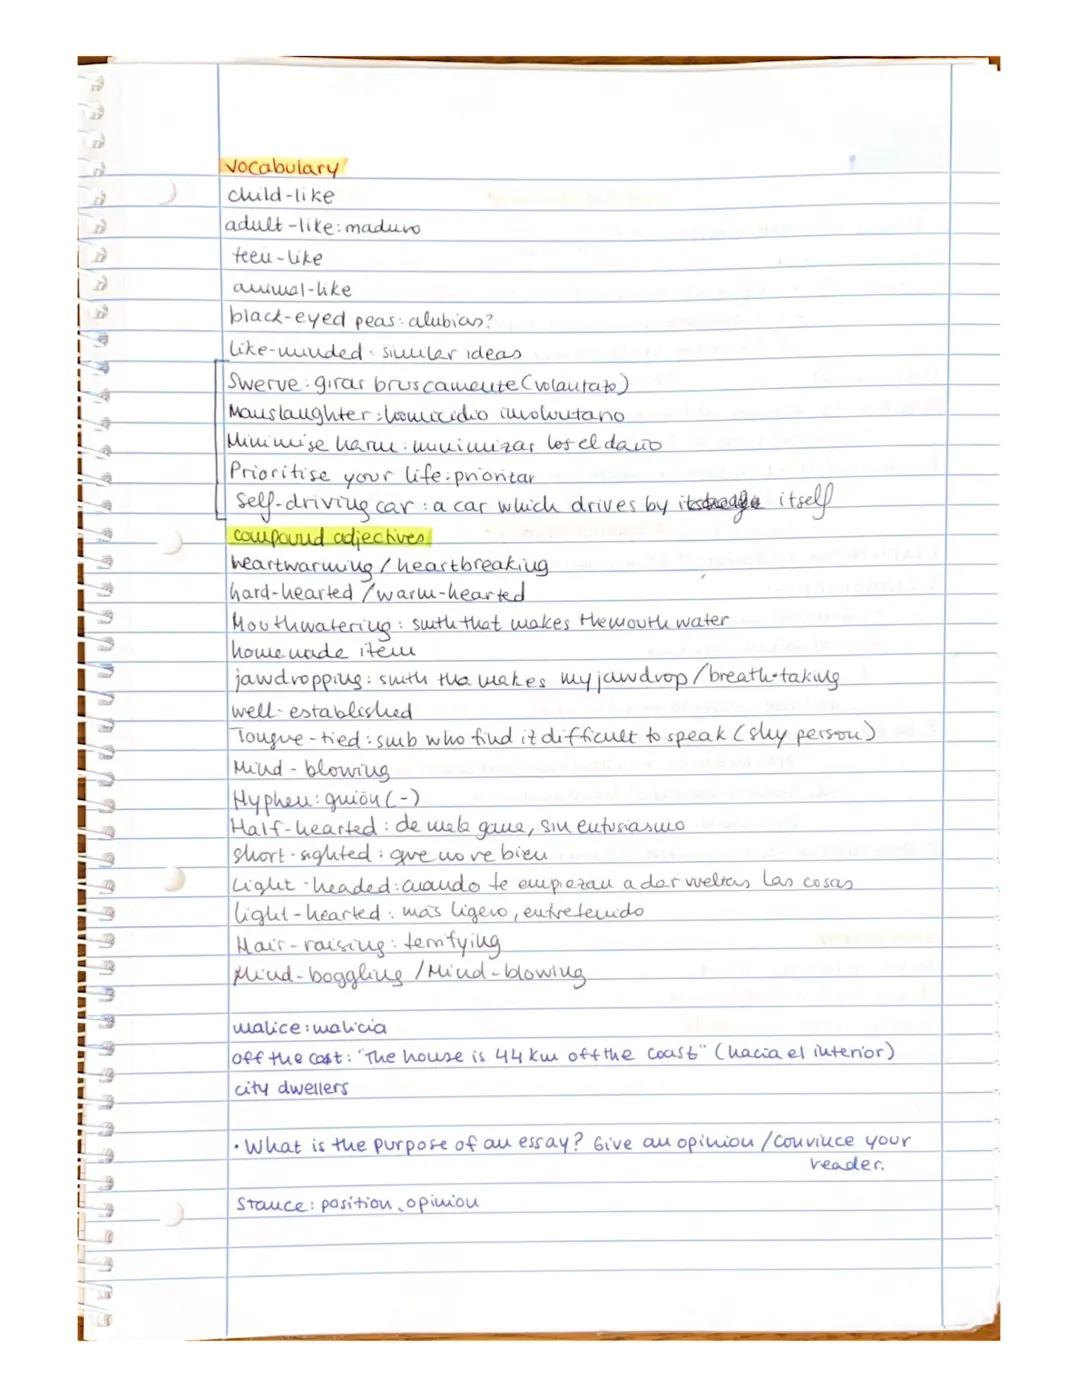 vocabulary
child-like
adult-like: maduro
teen-like
animal-like
black-eyed peas: alubias?
like-minded: similar ideas
Swerve: girar bruscamente (volantazo)
Manslaughter: homicidio involuntario
Minimise harm: minimizar los el daño
Prioritise your life: priorizar
Self-driving car: a car which drives by itself
compound adjectives
heartwarming / heartbreaking
hard-hearted / warm-hearted
Mouthwatering: smth that makes the mouth water
homemade item
jawdropping: smth tha makes my jawdrop / breath-taking
well-established
Tongue-tied: smb who find it difficult to speak (shy person)
Mind-blowing
Hyphen: guión (-)
Half-hearted: de mala gana, sin entusiasmo
short-sighted: que no ve bien
Light-headed: cuando te empiezan a dar vueltas las cosas
light-hearted: más ligero, entretenido
Hair-raising: terrifying
Mind-boggling / Mind-blowing
malice: malicia
off the cost: "The house is 44 km off the coast" (hacia el interior)
city dwellers
• What is the purpose of an essay? Give an opinion / convince your
reader.
Stance: position, opinion